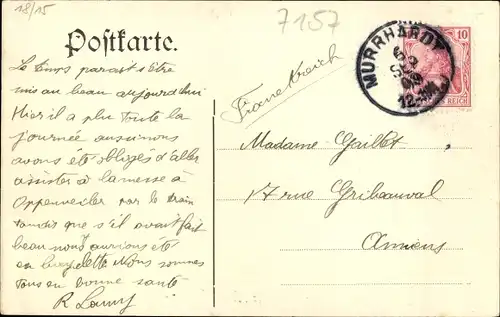 18/15
7157
Postkarte.
MURRHARDT
12-1N
10
REICH
Frankreich
Le temps parait s'être
mis au beau aujourd'hui
Hier il a plu toute la
journée aussi nous
avons été obligés d'aller
assister à la messe à
Oppenweiler par le train
tandis que s'il avait fait
beau nous aurions été
en bicyclette Nous sommes
tous en bonne santé
R Lamy
Madame Gaillet
17 rue Gribeauval
Amiens